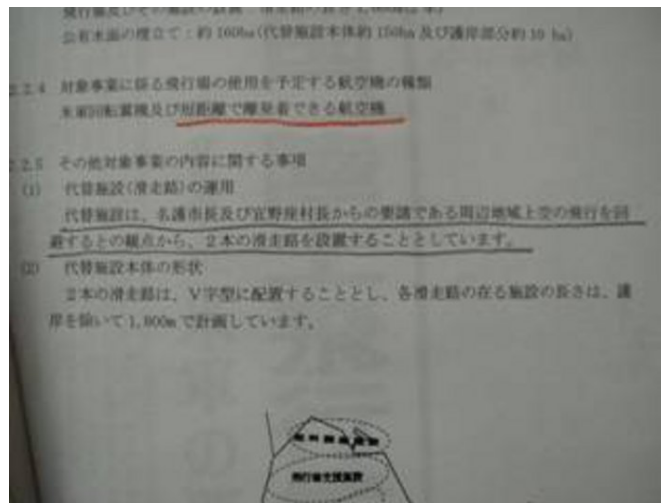 飛行場及びその施設の計画：滑走路の長さ1,600m(2本)
公有水面の埋立て：約160ha(代替施設本体約150ha 及び護岸部分約10 ha)
2.2.4 対象事業に係る飛行場の使用を予定する航空機の種類
米軍回転翼機及び短距離で離発着できる航空機
2.2.5 その他対象事業の内容に関する事項
(1) 代替施設(滑走路)の運用
代替施設は、名護市長及び宜野座村長からの要請である周辺地域上空の飛行を回
避するとの観点から、２本の滑走路を設置することとしています。
(2) 代替施設本体の形状
２本の滑走路は、Ｖ字型に配置することとし、各滑走路の在る施設の長さは、護
岸を除いて1,800mで計画しています。
飛行場支援施設